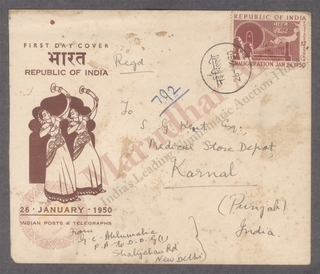 FIRST DAY COVER
भारत
REPUBLIC OF INDIA
Regd
792
REPUBLIC OF INDIA
INAUGURATION JAN 26, 1950
नई दिल्ली
To
Esq:
Medical Store Depot
Karnal
(Punjab)
India
26 · JANUARY · 1950
INDIAN POSTS & TELEGRAPHS
From
G. C. Ahluwalia
P.A to D.D.G (
Shahjahan Rd
New Delhi
Marudhar
India's Leading